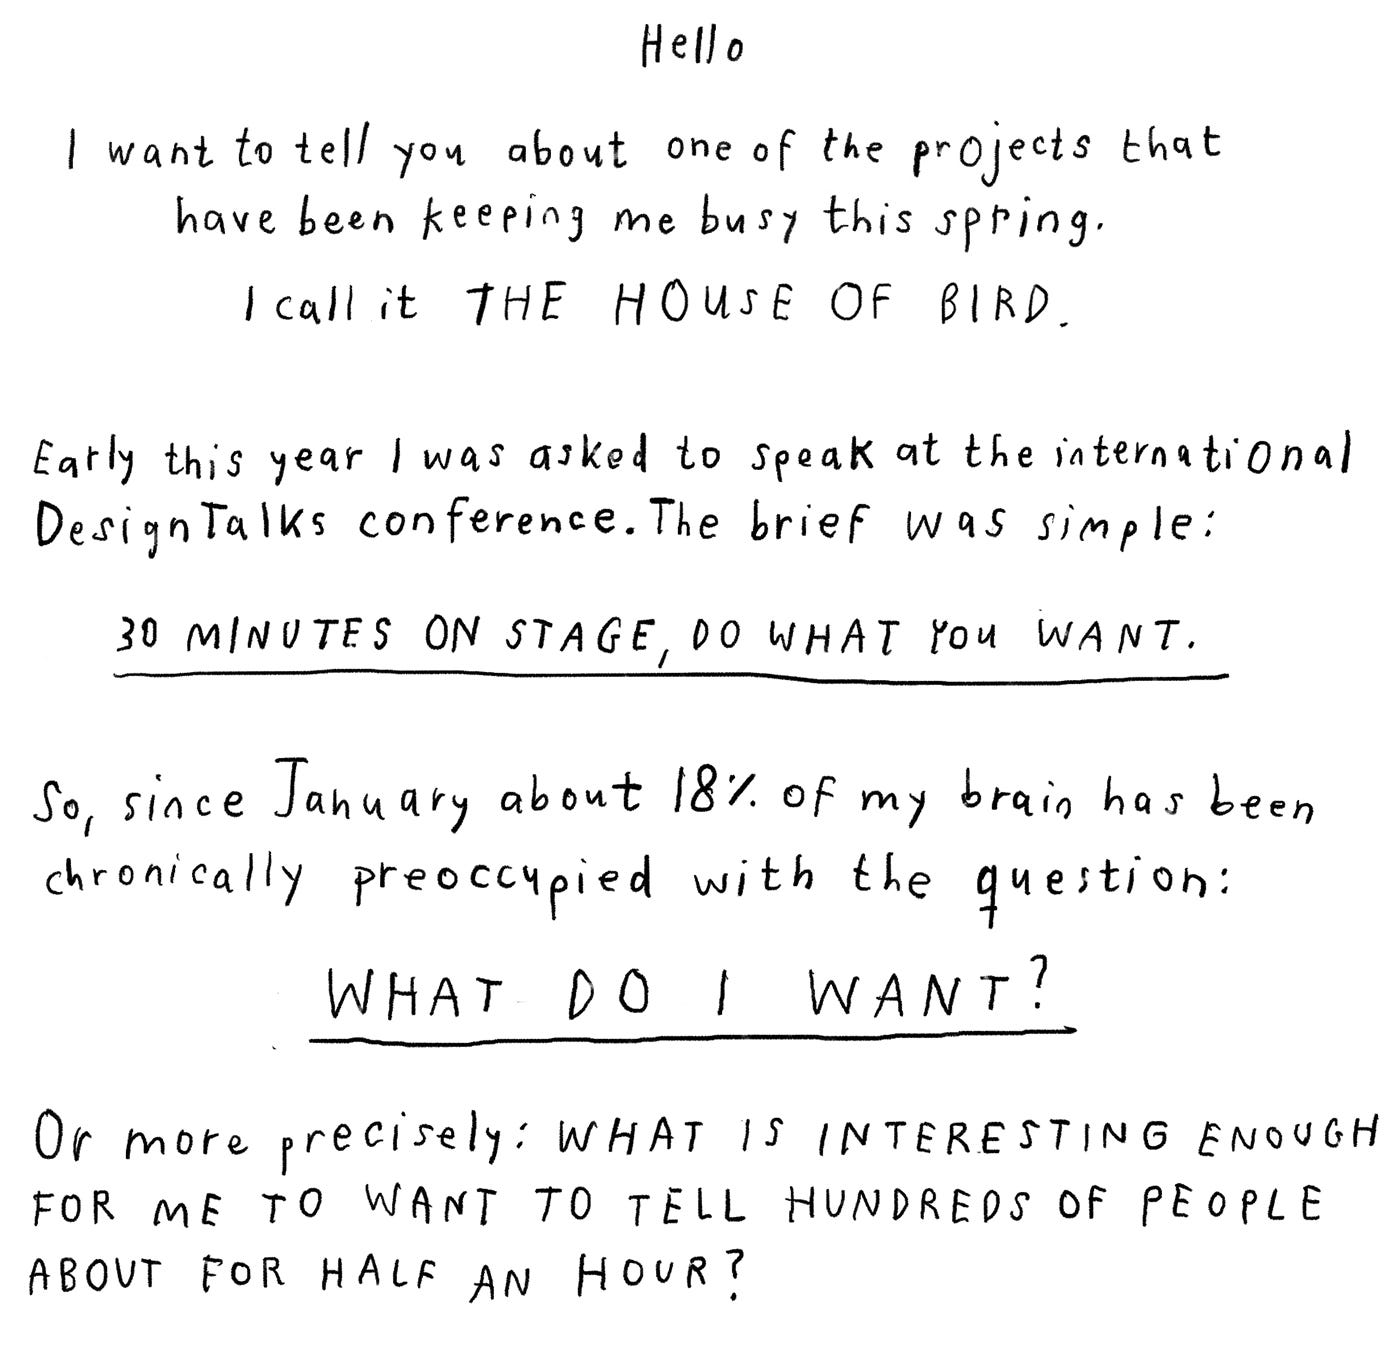 Hello
I want to tell you about one of the projects that
have been keeping me busy this spring.
I call it THE HOUSE OF BIRD.
Early this year I was asked to speak at the international
DesignTalks conference. The brief was simple:
30 MINUTES ON STAGE, DO WHAT YOU WANT.
So, since January about 18% of my brain has been
chronically preoccupied with the question:
WHAT DO I WANT?
Or more precisely: WHAT IS INTERESTING ENOUGH
FOR ME TO WANT TO TELL HUNDREDS OF PEOPLE
ABOUT FOR HALF AN HOUR?